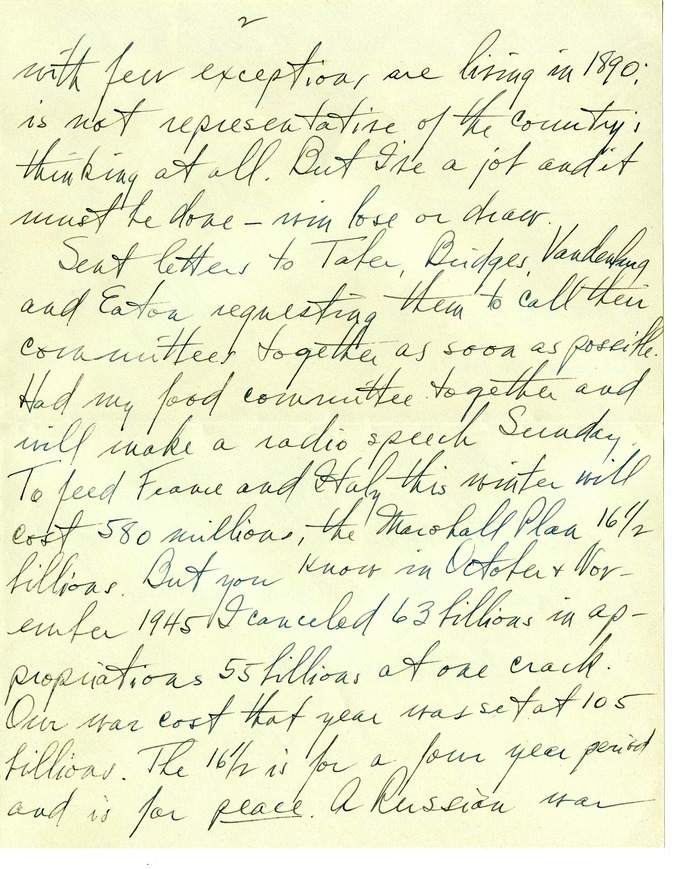 2
with few exceptions are living in 1890;
is not representative of the country's
thinking at all. But I've a job and it
must be done – win lose or draw.
Sent letters to Taber, Bridges, Vandenburg
and Eaton requesting them to call their
committees together as soon as possible.
Had my food committee together and
will make a radio speech Sunday.
To feed France and Italy this winter will
cost 580 millions, the Marshall Plan 16 1/2
billions. But you know in October & Nov-
ember 1945 I canceled 63 billions in ap-
propriations 55 billions at one crack.
Our war cost that year was set at 105
billions. The 16 1/2 is for a four year period
and is for peace. A Russian war